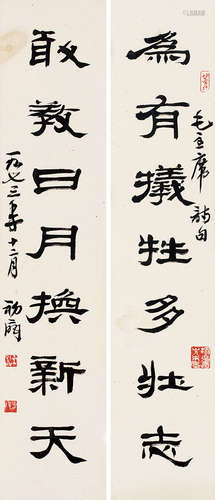 為有犧牲多壯志
毛主席詩句
敢教日月換新天
一九七三年十二月